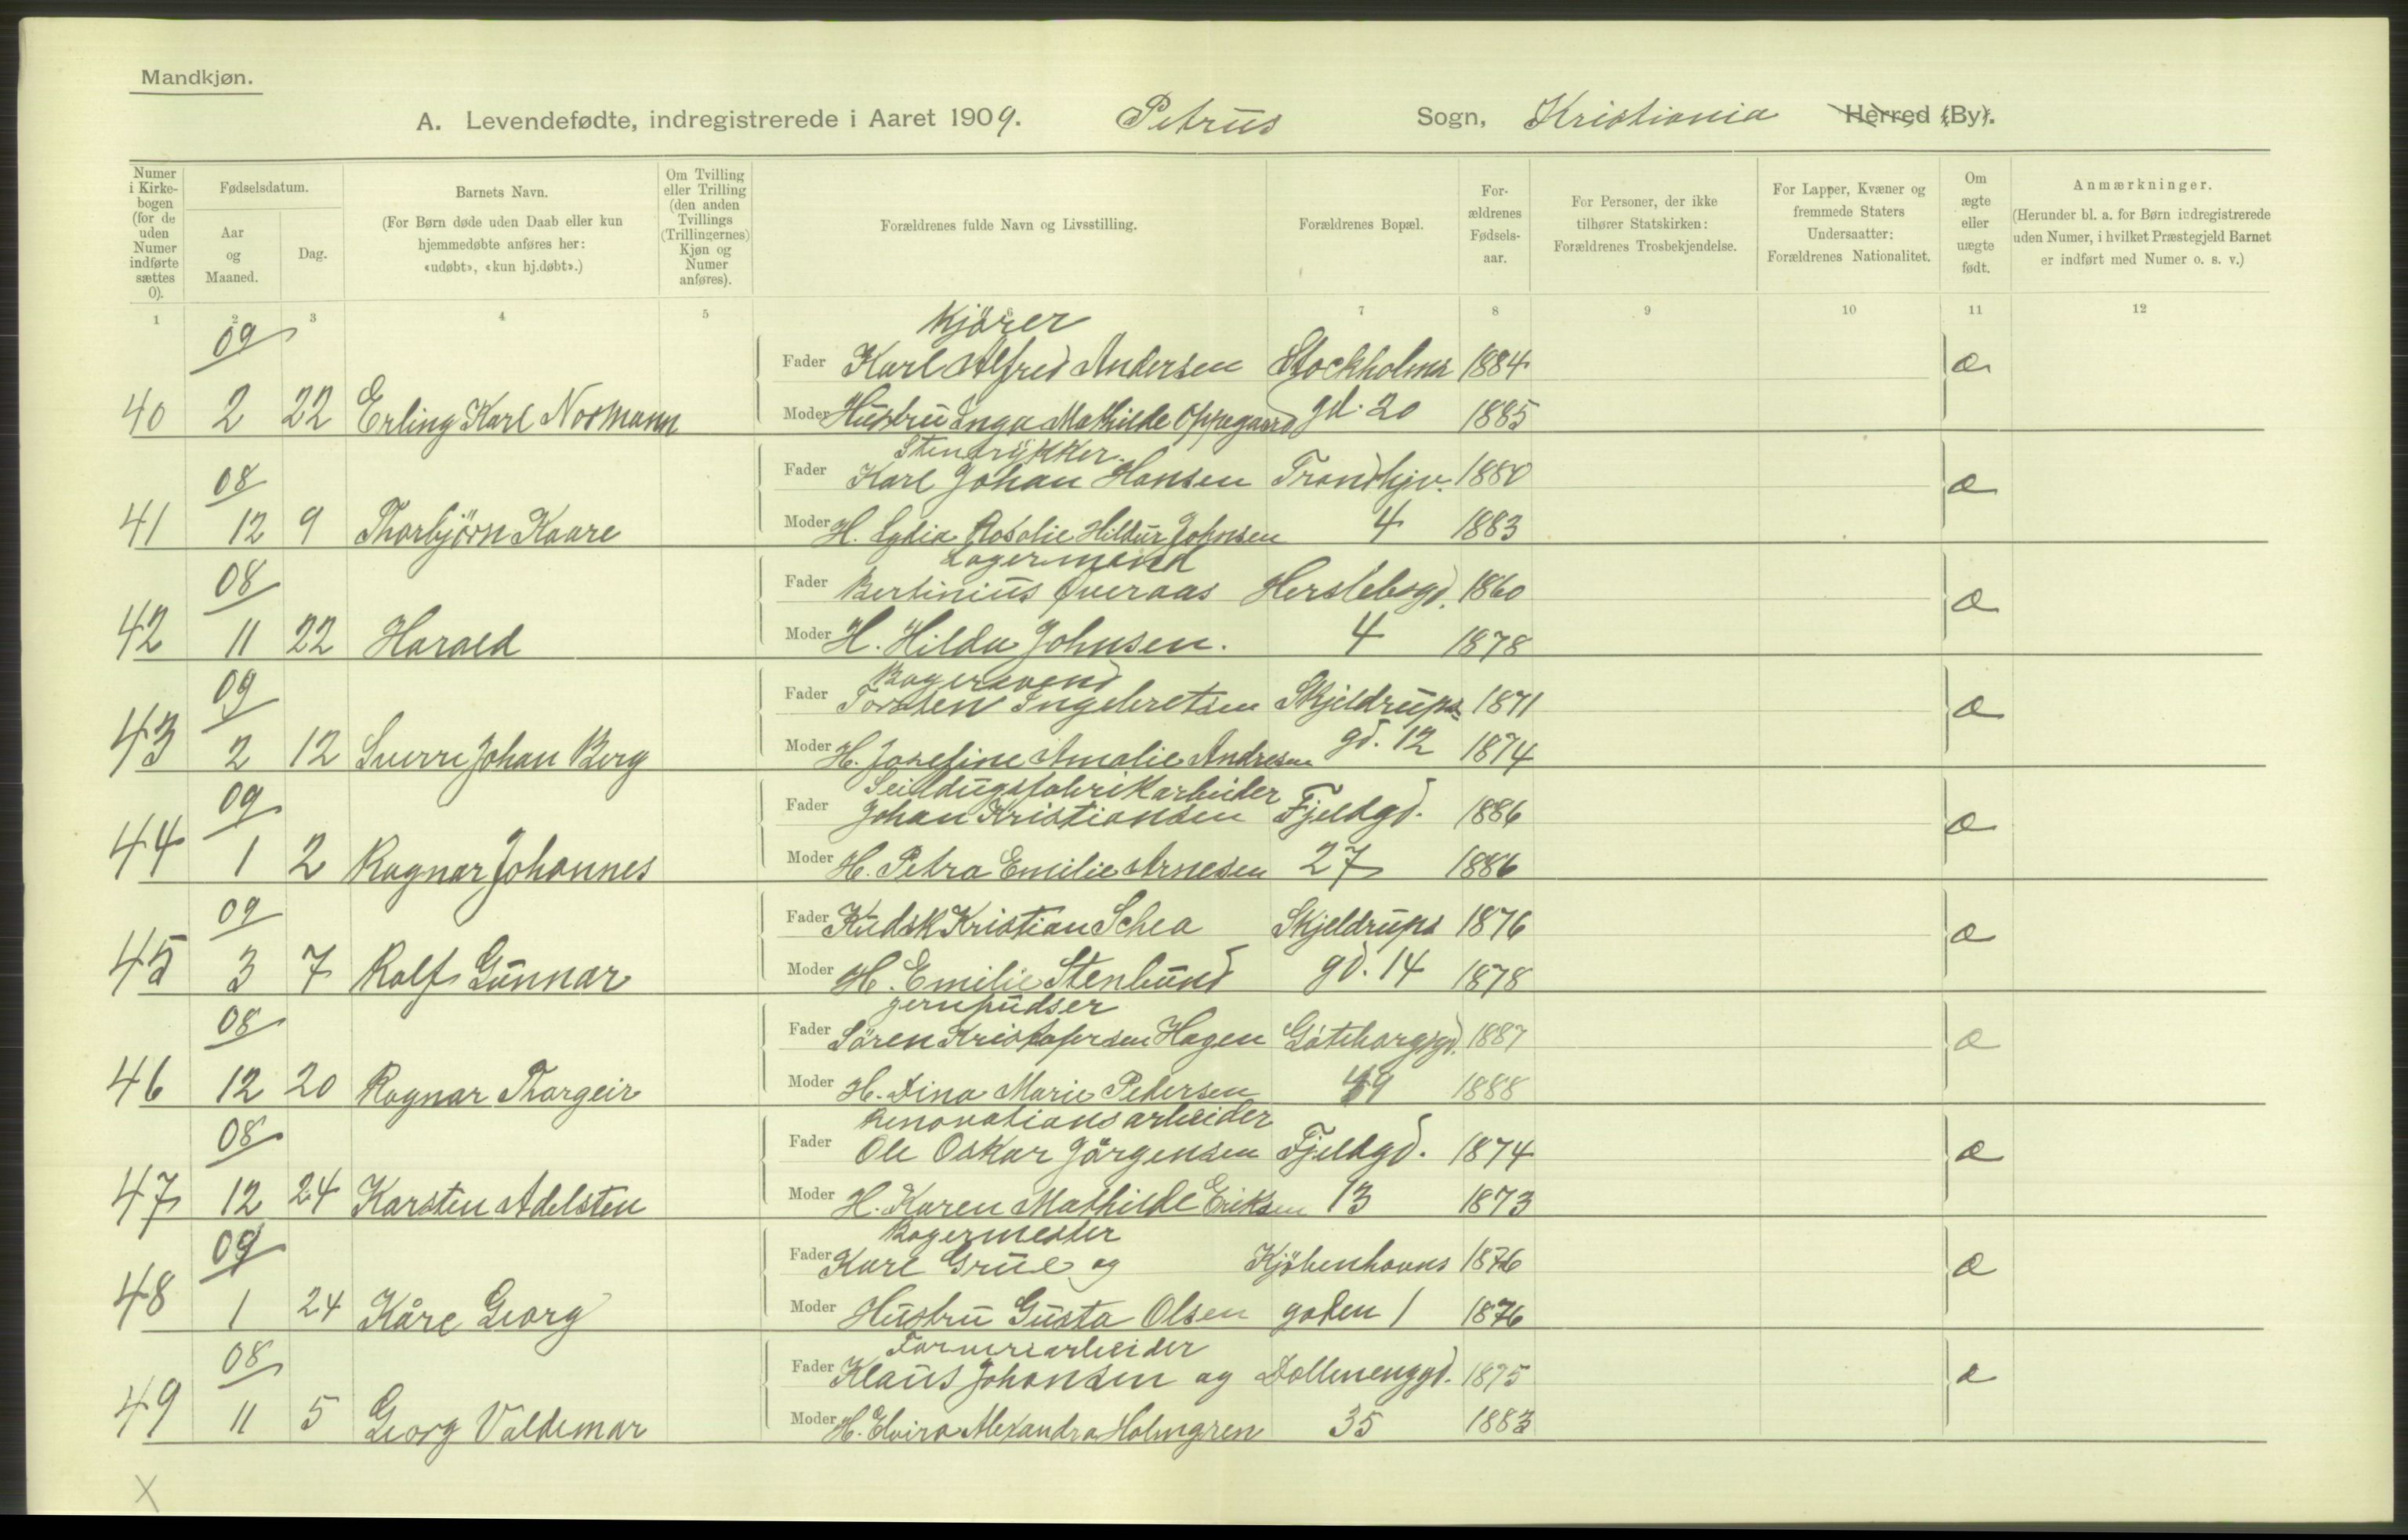 Mandkjøn.
A. Levendefødte, indregistrerede i Aaret 1909. Petrus Sogn, Kristiania Herred (By).
Numer i Kirke-bogen (for de uden Numer indførte sættes 0).
Fødselsdatum.
Aar og Maaned.
Dag.
Barnets Navn.
(For Børn døde uden Daab eller kun hjemmedøbte anføres her: «udøbt», «kun hj.døbt».)
Om Tvilling eller Trilling (den anden Tvillings (Trillingernes) Kjøn og Numer anføres).
Forældrenes fulde Navn og Livsstilling.
Forældrenes Bopæl.
For-ældrenes Fødsels-aar.
For Personer, der ikke tilhører Statskirken: Forældrenes Trosbekjendelse.
For Lapper, Kvæner og fremmede Staters Undersaatter: Forældrenes Nationalitet.
Om ægte eller uægte født.
Anmærkninger.
(Herunder bl. a. for Børn indregistrerede uden Numer, i hvilket Præstegjeld Barnet er indført med Numer o. s. v.)
1 2 3 4 5 6 7 8 9 10 11 12
09 Kjører
Fader Karl Alfred Andersen Stockholms 1884 æ
40 2 22 Erling Karl Normann Moder Hustru Inga Mathilde Oppegaard gd. 20 1885
08 Stentrykker
Fader Karl Johan Hansen Trondhjv. 1880 æ
41 12 9 Thorbjörn Kaare Moder H. Lydia Rosalie Hildur Johnsen 4 1883
08 Lagermand
Fader Bertinius Överaas Herslebsgd. 1860 æ
42 11 22 Harald Moder H. Hilda Johnsen. 4 1878
09 Bagersvend
Fader Torsten Ingebretsen Skjeldrups= 1871 æ
43 2 12 Sverre Johan Berg Moder H. Josefine Amalie Andresen gd. 12 1874
09 Seildugsfabrikarbeider
Fader Johan Kristiansen Fjeldgd. 1886 æ
44 1 2 Ragnar Johannes Moder H. Petra Emilie Arnesen 27 1886
09 Fader Kudsk Kristian Schea Skjeldrups 1876 æ
45 3 7 Rolf Gunnar Moder H. Emilie Stenlund gd. 14 1878
08 Jernpudser
Fader Sören Kristofersen Hagen Göteborggd. 1887 æ
46 12 20 Ragnar Thorgeir Moder H. Dina Marie Pedersen 49 1888
08 Renovationsarbeider
Fader Ole Oskar Jörgensen Fjeldgd. 1874 æ
47 12 24 Karsten Adelsten Moder H. Karen Mathilde Eriksen 13 1873
09 Bagermester
Fader Karl Grüe og Kjöbenhavns 1876 æ
48 1 24 Kåre Georg Moder Hustru Gusta Olsen gaden 1 1876
08 Farveriarbeider
Fader Klaus Johansen og Dællenenggd. 1875 æ
49 11 5 Georg Valdemar Moder H. Elvira Alexandra Holmgren 35 1883
X